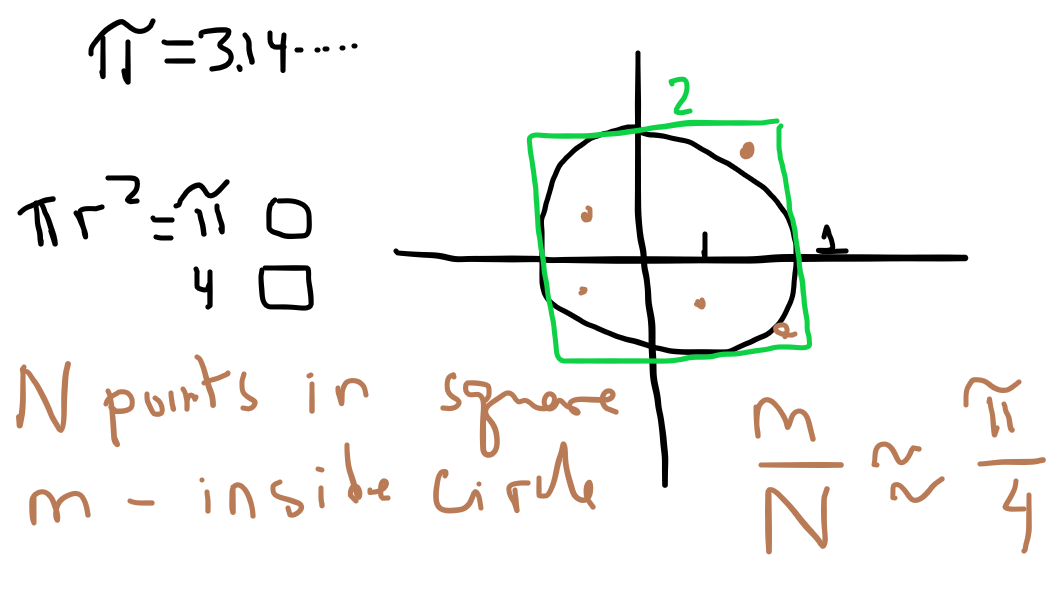 π = 3.14.....
2
πr² = π
4
1
1
N points in square
m - inside circle
m/N ≈ π/4